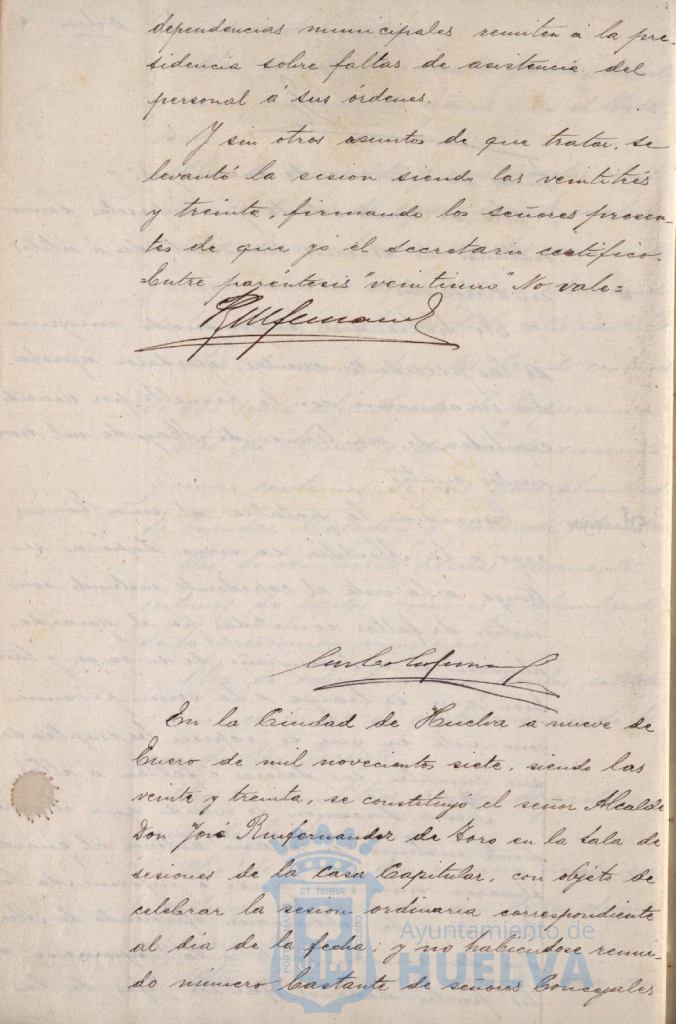 dependencias municipales remiten á la pre-
sidencia sobre faltas de asistencia del
personal á sus órdenes.
Y sin otros asuntos de que tratar, se
levantó la sesion siendo las veintitrés
y treinta, firmando los señores presen-
tes de que yó el secretario certifico.
=Entre paréntesis "veintiuno" No vale=
En la Ciudad de Huelva a nueve de
Enero de mil novecientos siete, siendo las
veinte y treinta, se constituyó el señor Alcalde
Don José Ruifernandez de Toro en la sala de
sesiones de la Casa Capitular, con objeto de
celebrar la sesion ordinaria correspondiente
al dia de la fecha; y no habiéndose reuni-
do número bastante de señores Concejales
Ayuntamiento de
HUELVA